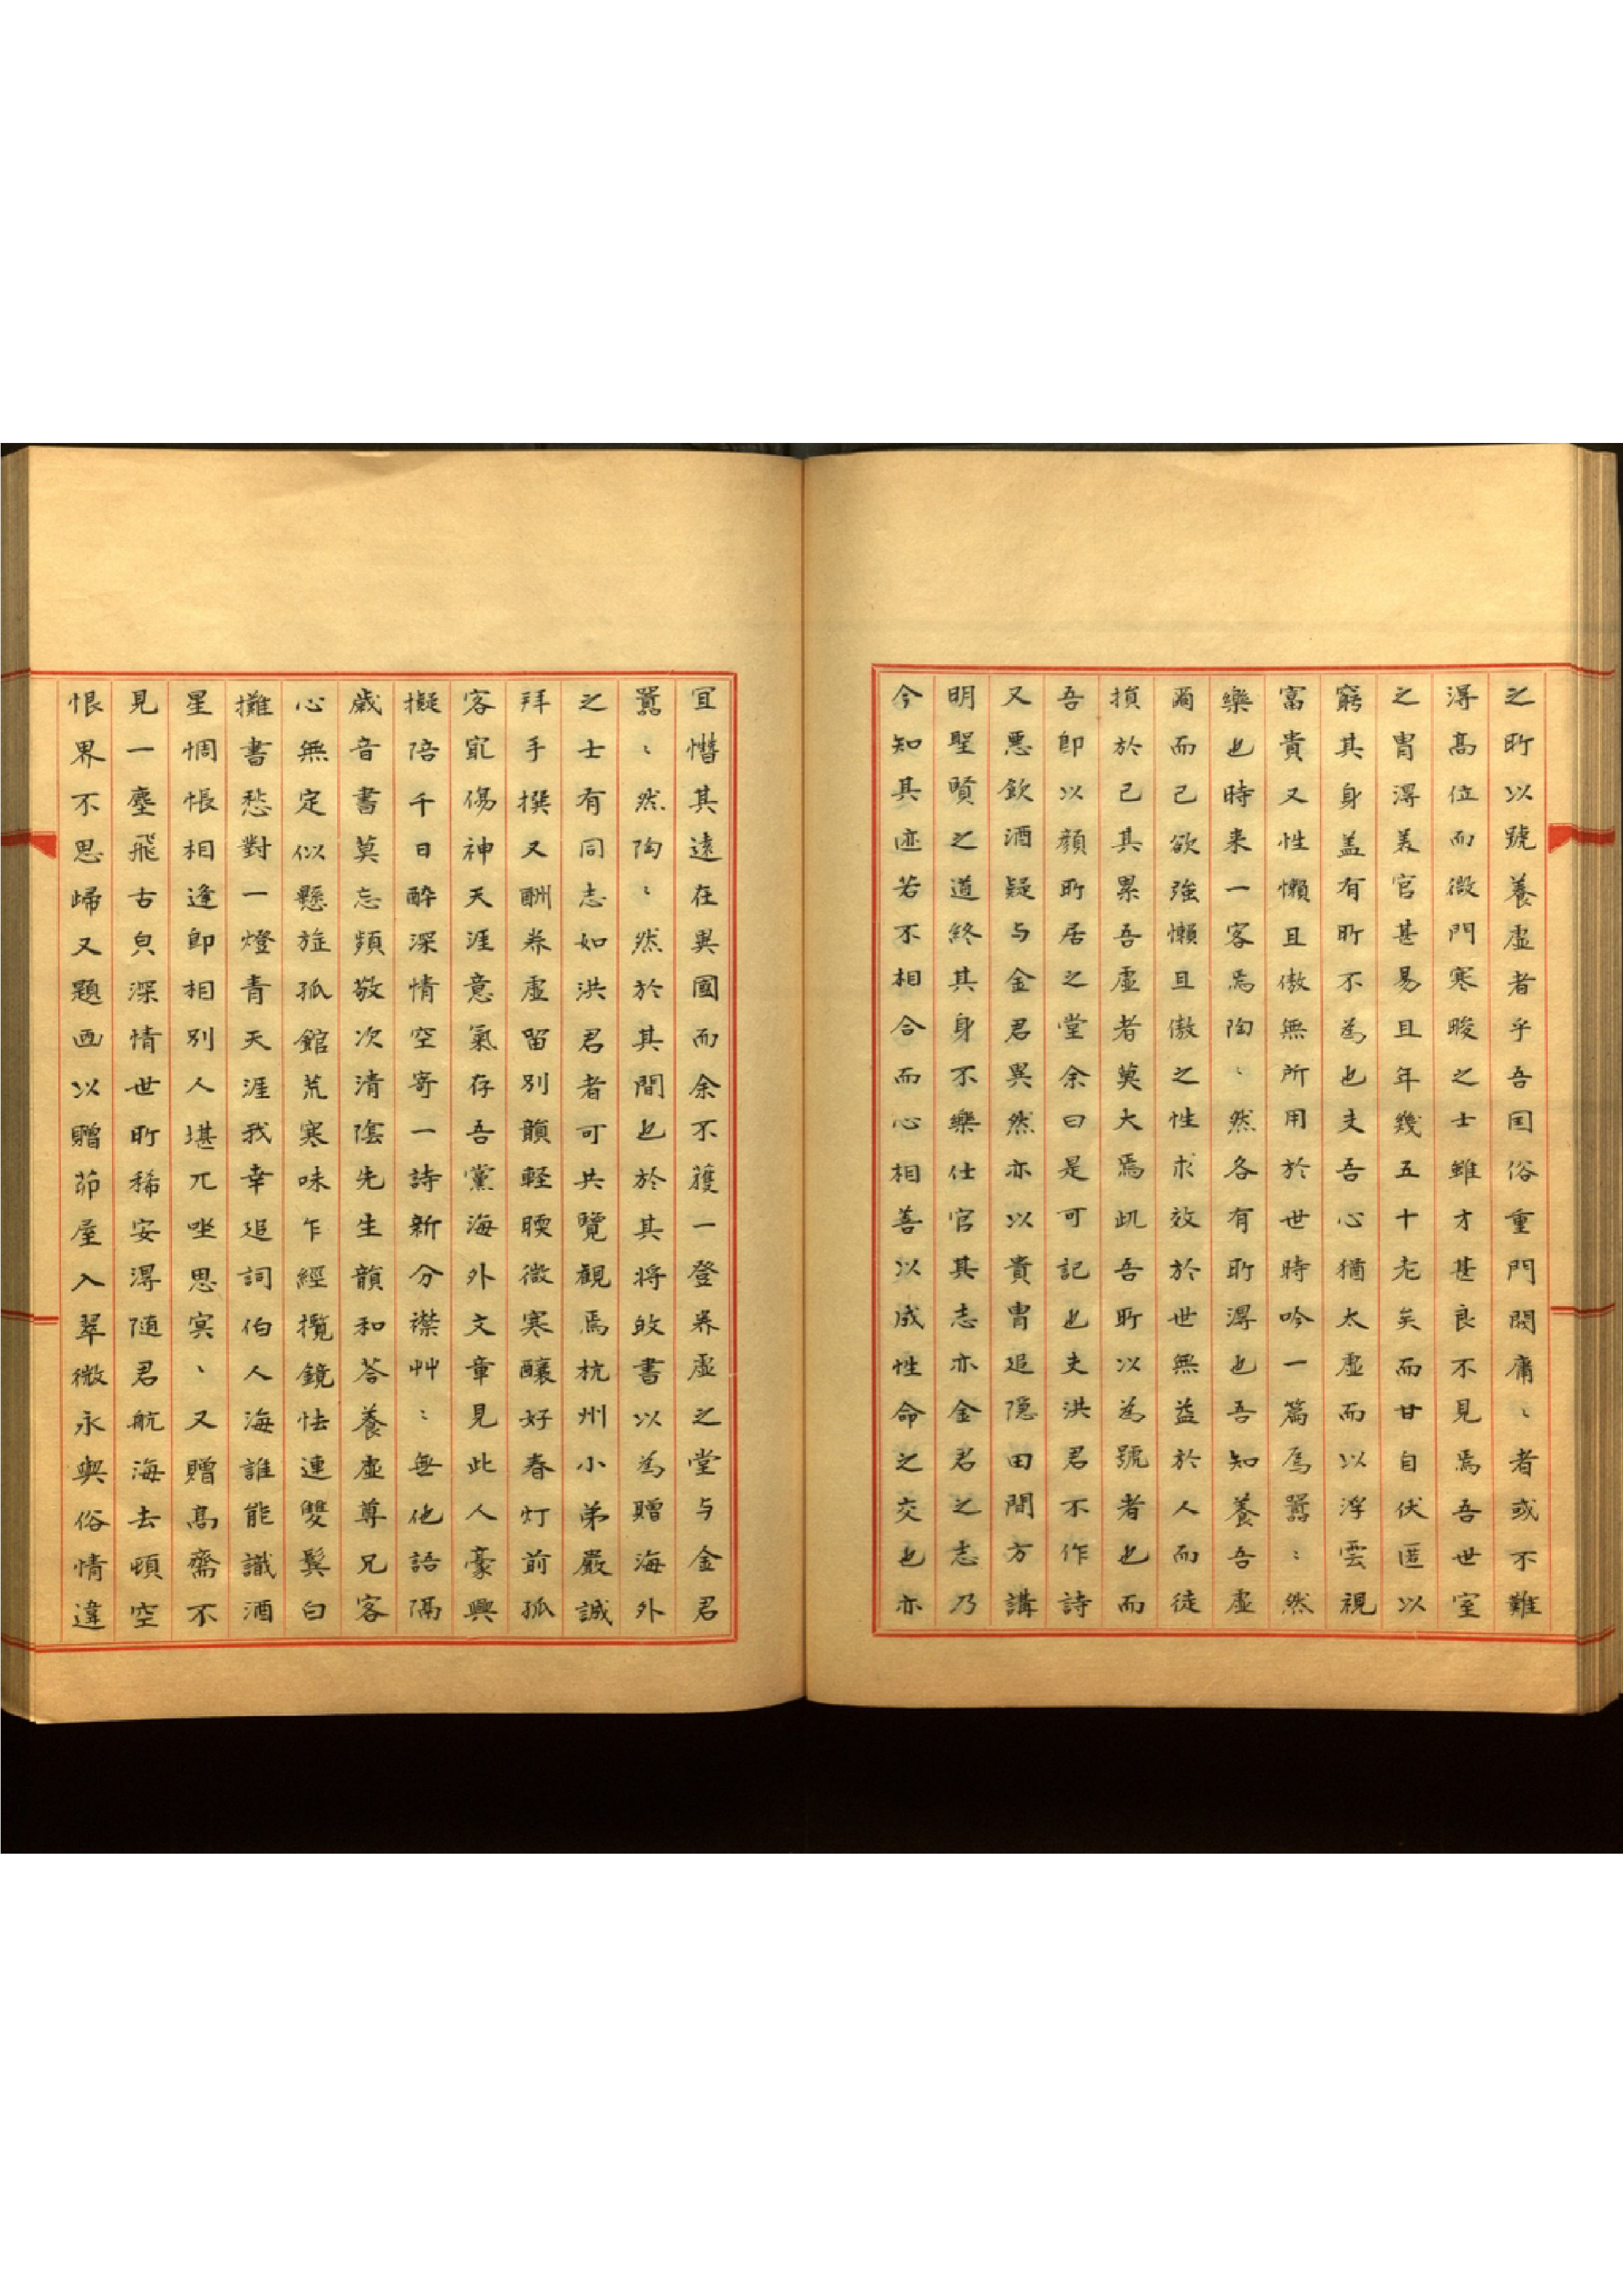 之所以號養虛者乎吾国俗重門閥庸〻者或不難
淂髙位而微門寒畯之士雖才甚良不見焉吾世室
之冑淂美官甚易且年幾五十老矣而甘自伏匿以
窮其身盖有所不為也夫吾心猶太虛而以浮雲視
富貴又性懶且傲無所用於世時吟一篇焉囂〻然
樂也時来一客焉陶〻然各有所淂也吾知養吾虛
爾而已欲強懶且傲之性求效於世無益於人而徒
損於己其累吾虛者莫大焉此吾所以為號者也而
吾即以顔所居之堂余曰是可記也夫洪君不作詩
又悪飲酒疑与金君異然亦以貴冑退隠田間方講
明聖賢之道終其身不樂仕官其志亦金君之志乃
今知其迹若不相合而心相善以成性命之交也亦
宜憯其遠在異國而余不獲一登养虛之堂与金君
囂〻然陶〻然於其間也於其将㱕書以為贈海外
之士有同志如洪君者可共覽觀焉杭州小弟嚴誠
拜手撰又酬养虛留別韻軽暖微寒釀好春灯前孤
客㝡傷神天涯意氣存吾黨海外文章見此人豪興
擬陪千日酔深情空寄一詩新分襟艸〻無他語隔
歳音書莫忘頻敬次清陰先生韻和答養虛尊兄客
心無定似懸旌孤館荒寒味乍經攬鏡怯連雙鬂白
攤書愁對一燈青天涯我幸追詞伯人海誰能識酒
星惆悵相逢即相別人堪兀坐思㝠〻又贈髙齋不
見一塵飛古皃深情世所稀安淂随君航海去頓空
恨界不思歸又題画以贈茆屋入翠微永與俗情違